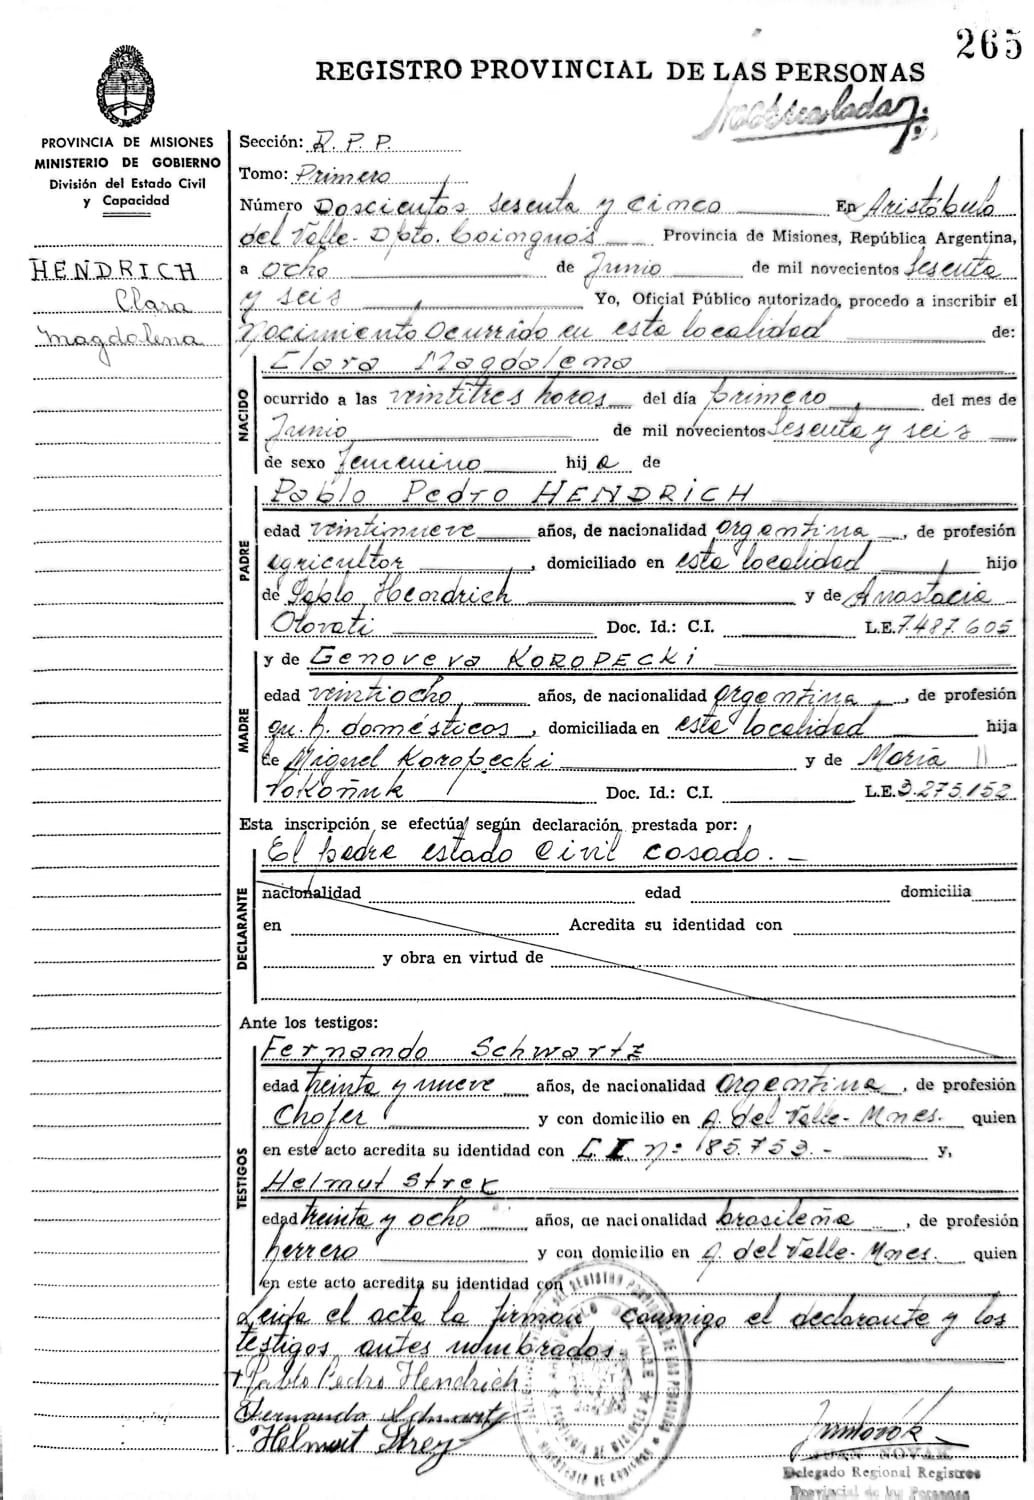 265
REGISTRO PROVINCIAL DE LAS PERSONAS
PROVINCIA DE MISIONES
MINISTERIO DE GOBIERNO
División del Estado Civil
y Capacidad
HENDRICH
Clara
Magdalena
Sección: R. P. P.
Tomo: Primero
Número Doscientos sesenta y cinco En Aristóbulo
del Valle - Dpto. Cainguás Provincia de Misiones, República Argentina,
a ocho de Junio de mil novecientos sesenta
y seis Yo, Oficial Público autorizado, procedo a inscribir el
nacimiento ocurrido en esta localidad de:
Clara Magdalena
NACIDO
ocurrido a las veintitres horas del día primero del mes de
Junio de mil novecientos sesenta y seis
de sexo femenino hija de
Pablo Pedro HENDRICH
PADRE
edad veintinueve años, de nacionalidad argentina, de profesión
agricultor, domiciliado en esta localidad hijo
de Pablo Hendrich y de Anastacia
Otovati Doc. Id.: C.I. L.E. 7.487.605
y de Genoveva KOROPECKI
MADRE
edad veintiocho, años, de nacionalidad argentina, de profesión
qu. h. domésticos, domiciliada en esta localidad hija
de Miguel Koropecki y de María
Doc. Id.: C.I. L.E. 3.275.152
Esta inscripción se efectúa según declaración prestada por:
El padre estado civil casado. -
DECLARANTE
nacionalidad edad domicilia
en Acredita su identidad con
y obra en virtud de
Ante los testigos:
Fernando Schwartz
TESTIGOS
edad treinta y nueve años, de nacionalidad argentina, de profesión
Chofer y con domicilio en A. del Valle - Mnes. quien
en este acto acredita su identidad con C.I. nº 185.753. - y,
Helmut Strey
edad treinta y ocho años, de nacionalidad brasileña, de profesión
herrero y con domicilio en A. del Valle - Mnes. quien
en este acto acredita su identidad con
Leida el acta la firman conmigo el declarante y los
testigos antes nombrados.
Pablo Pedro Hendrich
Fernando Schwartz
Helmut Strey
JUAN NOVAK
Delegado Regional Registros
Provincial de las Personas